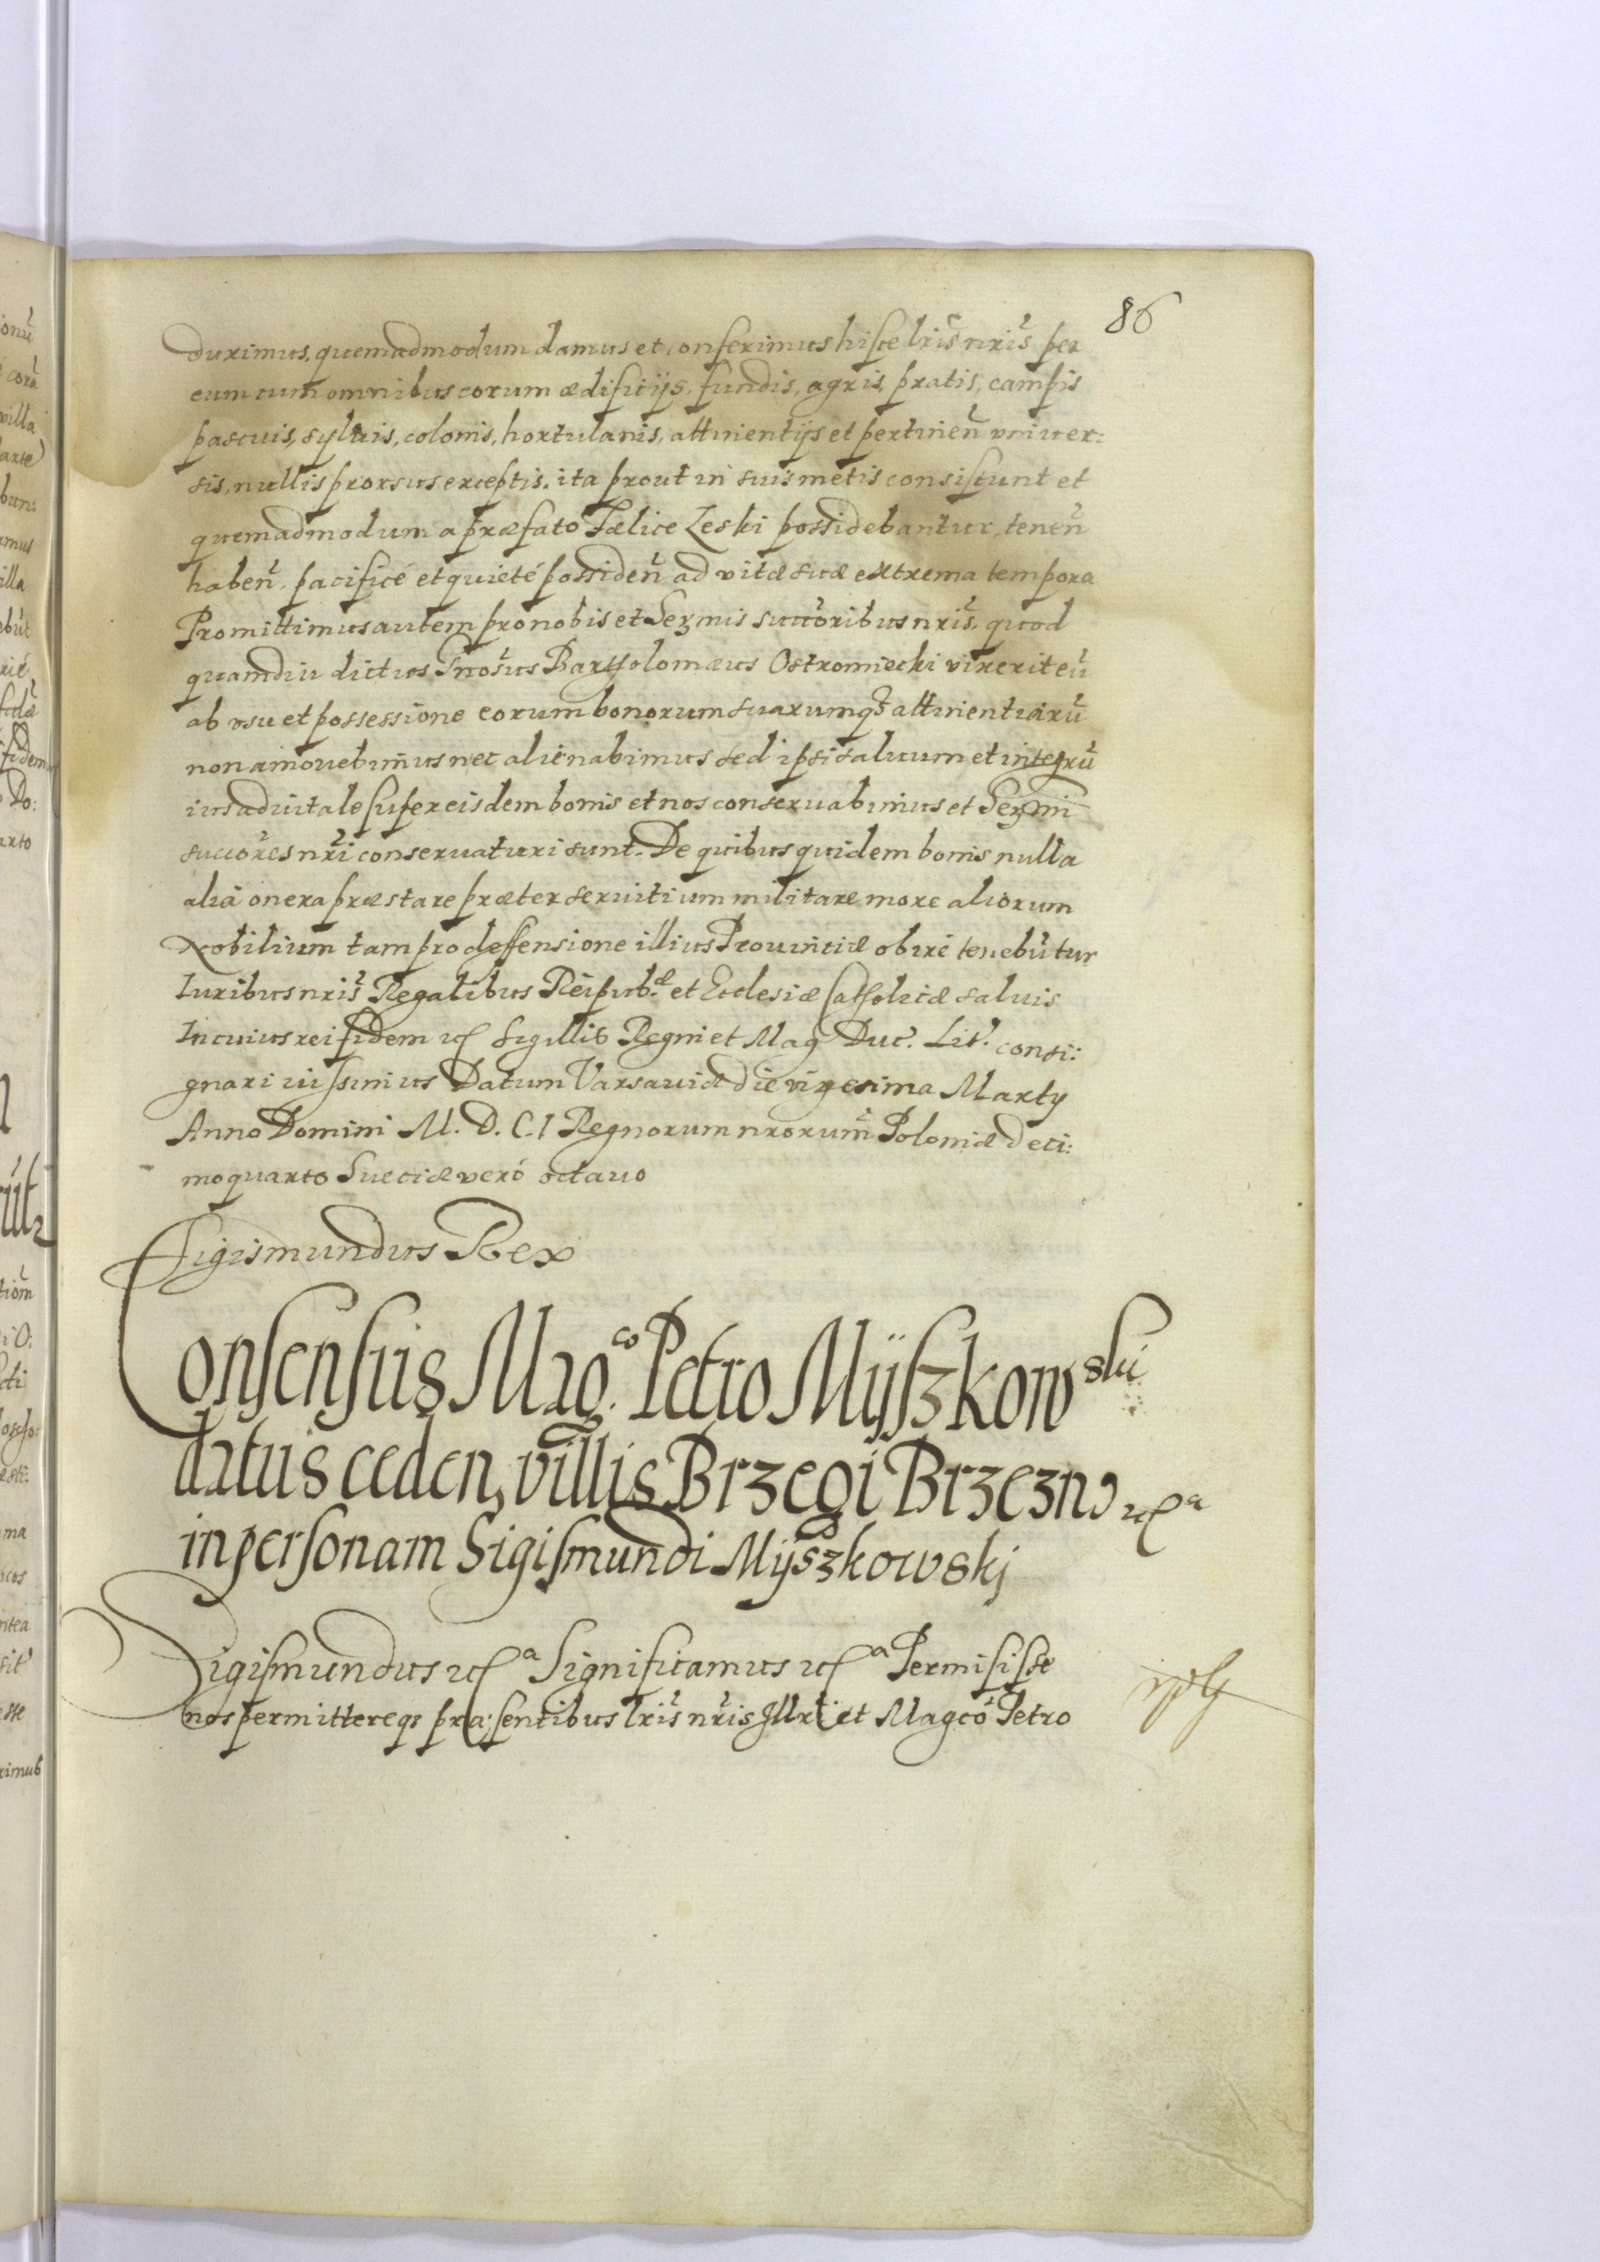 86
duximus, quemadmodum damus et conferimus hisce lris nris per
eum cum omnibus eorum ædificijs, fundis, agris, pratis, campis
pascuis, syluis, colonis, hortulanis, attinentijs et pertinen vniuer:
sis, nullis prorsus exceptis. ita prout in suis metis consistunt et
quemadmodum a præfato Fælice Zeski possidebantur, tenen
haben, pacificé et quieté possiden ad vitæ suæ extrema tempora
Promittimus autem pro nobis et Sermis succoribus nris, quod
quamdiu dictus Gnosus Bartholomæus Ostromiecki vixerit eu
ab vsu et possessione eorum bonorum suarumq attinentiaru
non amouebimus nec alienabimus sed ipsi saluum et integru
ius aduitale super eisdem bonis et nos conseruabimus et Sermi
succores nri conseruaturi sunt. De quibus quidem bonis nulla
alia onera præstare præter seruitium militare more aliorum
Nobilium tam pro deffensione illius Prouinciæ obire tenebutur
Iuribus nris Regalibus Reipub.æ et Ecclesiæ Catholicæ saluis
In cuius rei fidem etc Sigillis Regni et Mag Duc. Lit. consi:
gnari iussimus Datum Varsauiæ die vigesima Martij
Anno Domini M. D. C. I Regnorum nrorum Poloniæ deci:
moquarto Sueciæ veró octauo
Sigismundus Rex
Consensus Mag.co Petro Myszkowski
datus ceden, villis Brzegi Brzezno etc a
in personam Sigismundi Myszkowskj
Sigismundus etc a Significamus etc a Permisisse
nos permittereq præsentibus lris nris Illri et Magco Petro